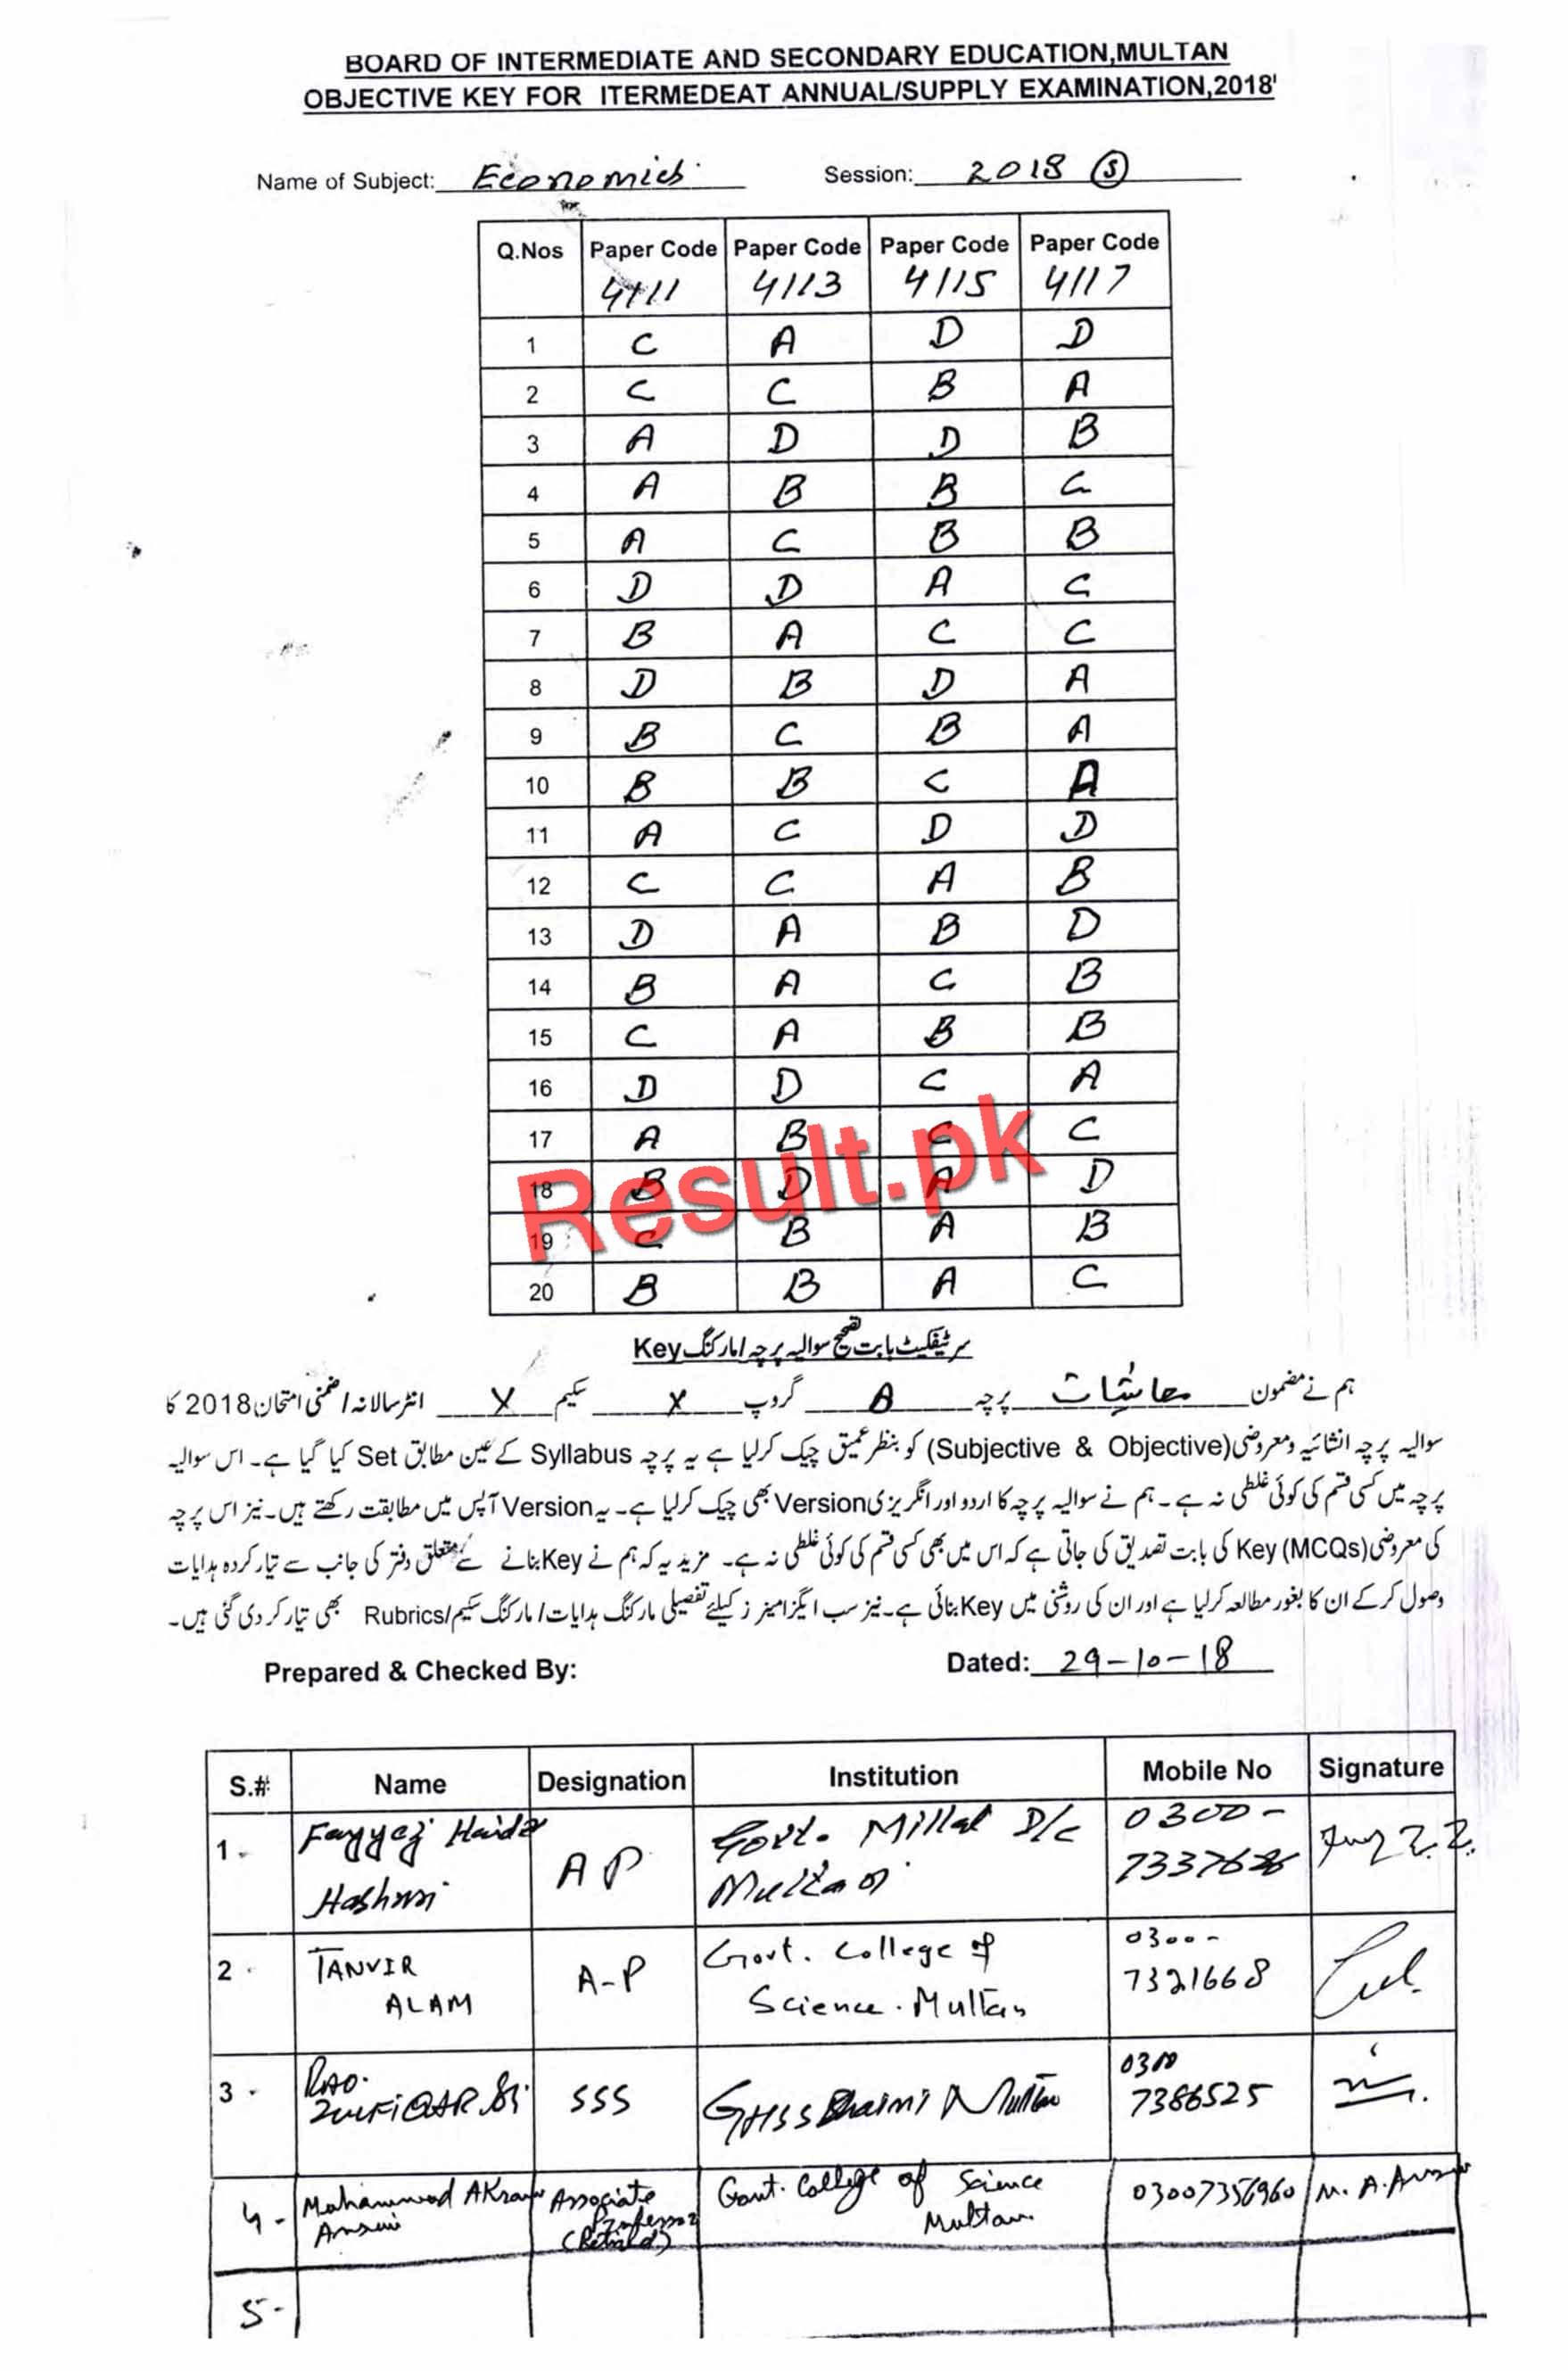 BOARD OF INTERMEDIATE AND SECONDARY EDUCATION,MULTAN
OBJECTIVE KEY FOR ITERMEDEAT ANNUAL/SUPPLY EXAMINATION,2018'
Name of Subject: Economics Session: 2018 (S)
Q.Nos Paper Code Paper Code Paper Code Paper Code
4111 4113 4115 4117
1 C A D D
2 C C B A
3 A D D B
4 A B B C
5 A C B B
6 D D A C
7 B A C C
8 D B D A
9 B C B A
10 B B C A
11 A C D D
12 C C A B
13 D A B D
14 B A C B
15 C A B B
16 D D C A
17 A B C C
18 B D A D
19 C B A B
20 B B A C
Result.pk
سرٹیفکیٹ بابت تصحیح سوالیہ پرچہ / مارکنگ Key
ہم نے مضمون معاشیات پرچہ A گروپ X سکیم X انٹر سالانہ / ضمنی امتحان 2018 کا
سوالیہ پرچہ انشائیہ ومعروضی (Subjective & Objective) کو بنظر عمیق چیک کرلیا ہے یہ پرچہ Syllabus کے عین مطابق Set کیا گیا ہے۔ اس سوالیہ
پرچہ میں کسی قسم کی کوئی غلطی نہ ہے۔ ہم نے سوالیہ پرچہ کا اردو اور انگریزی Version بھی چیک کرلیا ہے۔ یہ Version آپس میں مطابقت رکھتے ہیں۔ نیز اس پرچہ
کی معروضی Key (MCQs) کی بابت تصدیق کی جاتی ہے کہ اس میں بھی کسی قسم کی کوئی غلطی نہ ہے۔ مزید یہ کہ ہم نے Key بنانے کے متعلق دفتر کی جانب سے تیار کردہ ہدایات
وصول کرکے ان کا بغور مطالعہ کرلیا ہے اور ان کی روشنی میں Key بنائی ہے۔ نیز سب ایگزامینرز کیلئے تفصیلی مارکنگ ہدایات / مارکنگ سکیم /Rubrics بھی تیار کر دی گئی ہیں۔
Prepared & Checked By: Dated: 29-10-18
S.# Name Designation Institution Mobile No Signature
1- Fayyaz Haider Govt. Millat D/C 0300-
Hashmi AP Multan
2- TANVIR A-P Govt. College of 0300-
ALAM Science. Multan 7321668
3- RAO. SSS GHSS Multan 0300
ZULFIQAR Ali 7386525
4- Mohammad AKram Associate Govt. College of Science 03007356960 M. A. Ansari
Ansari Professor Multan
(Retired)
5-